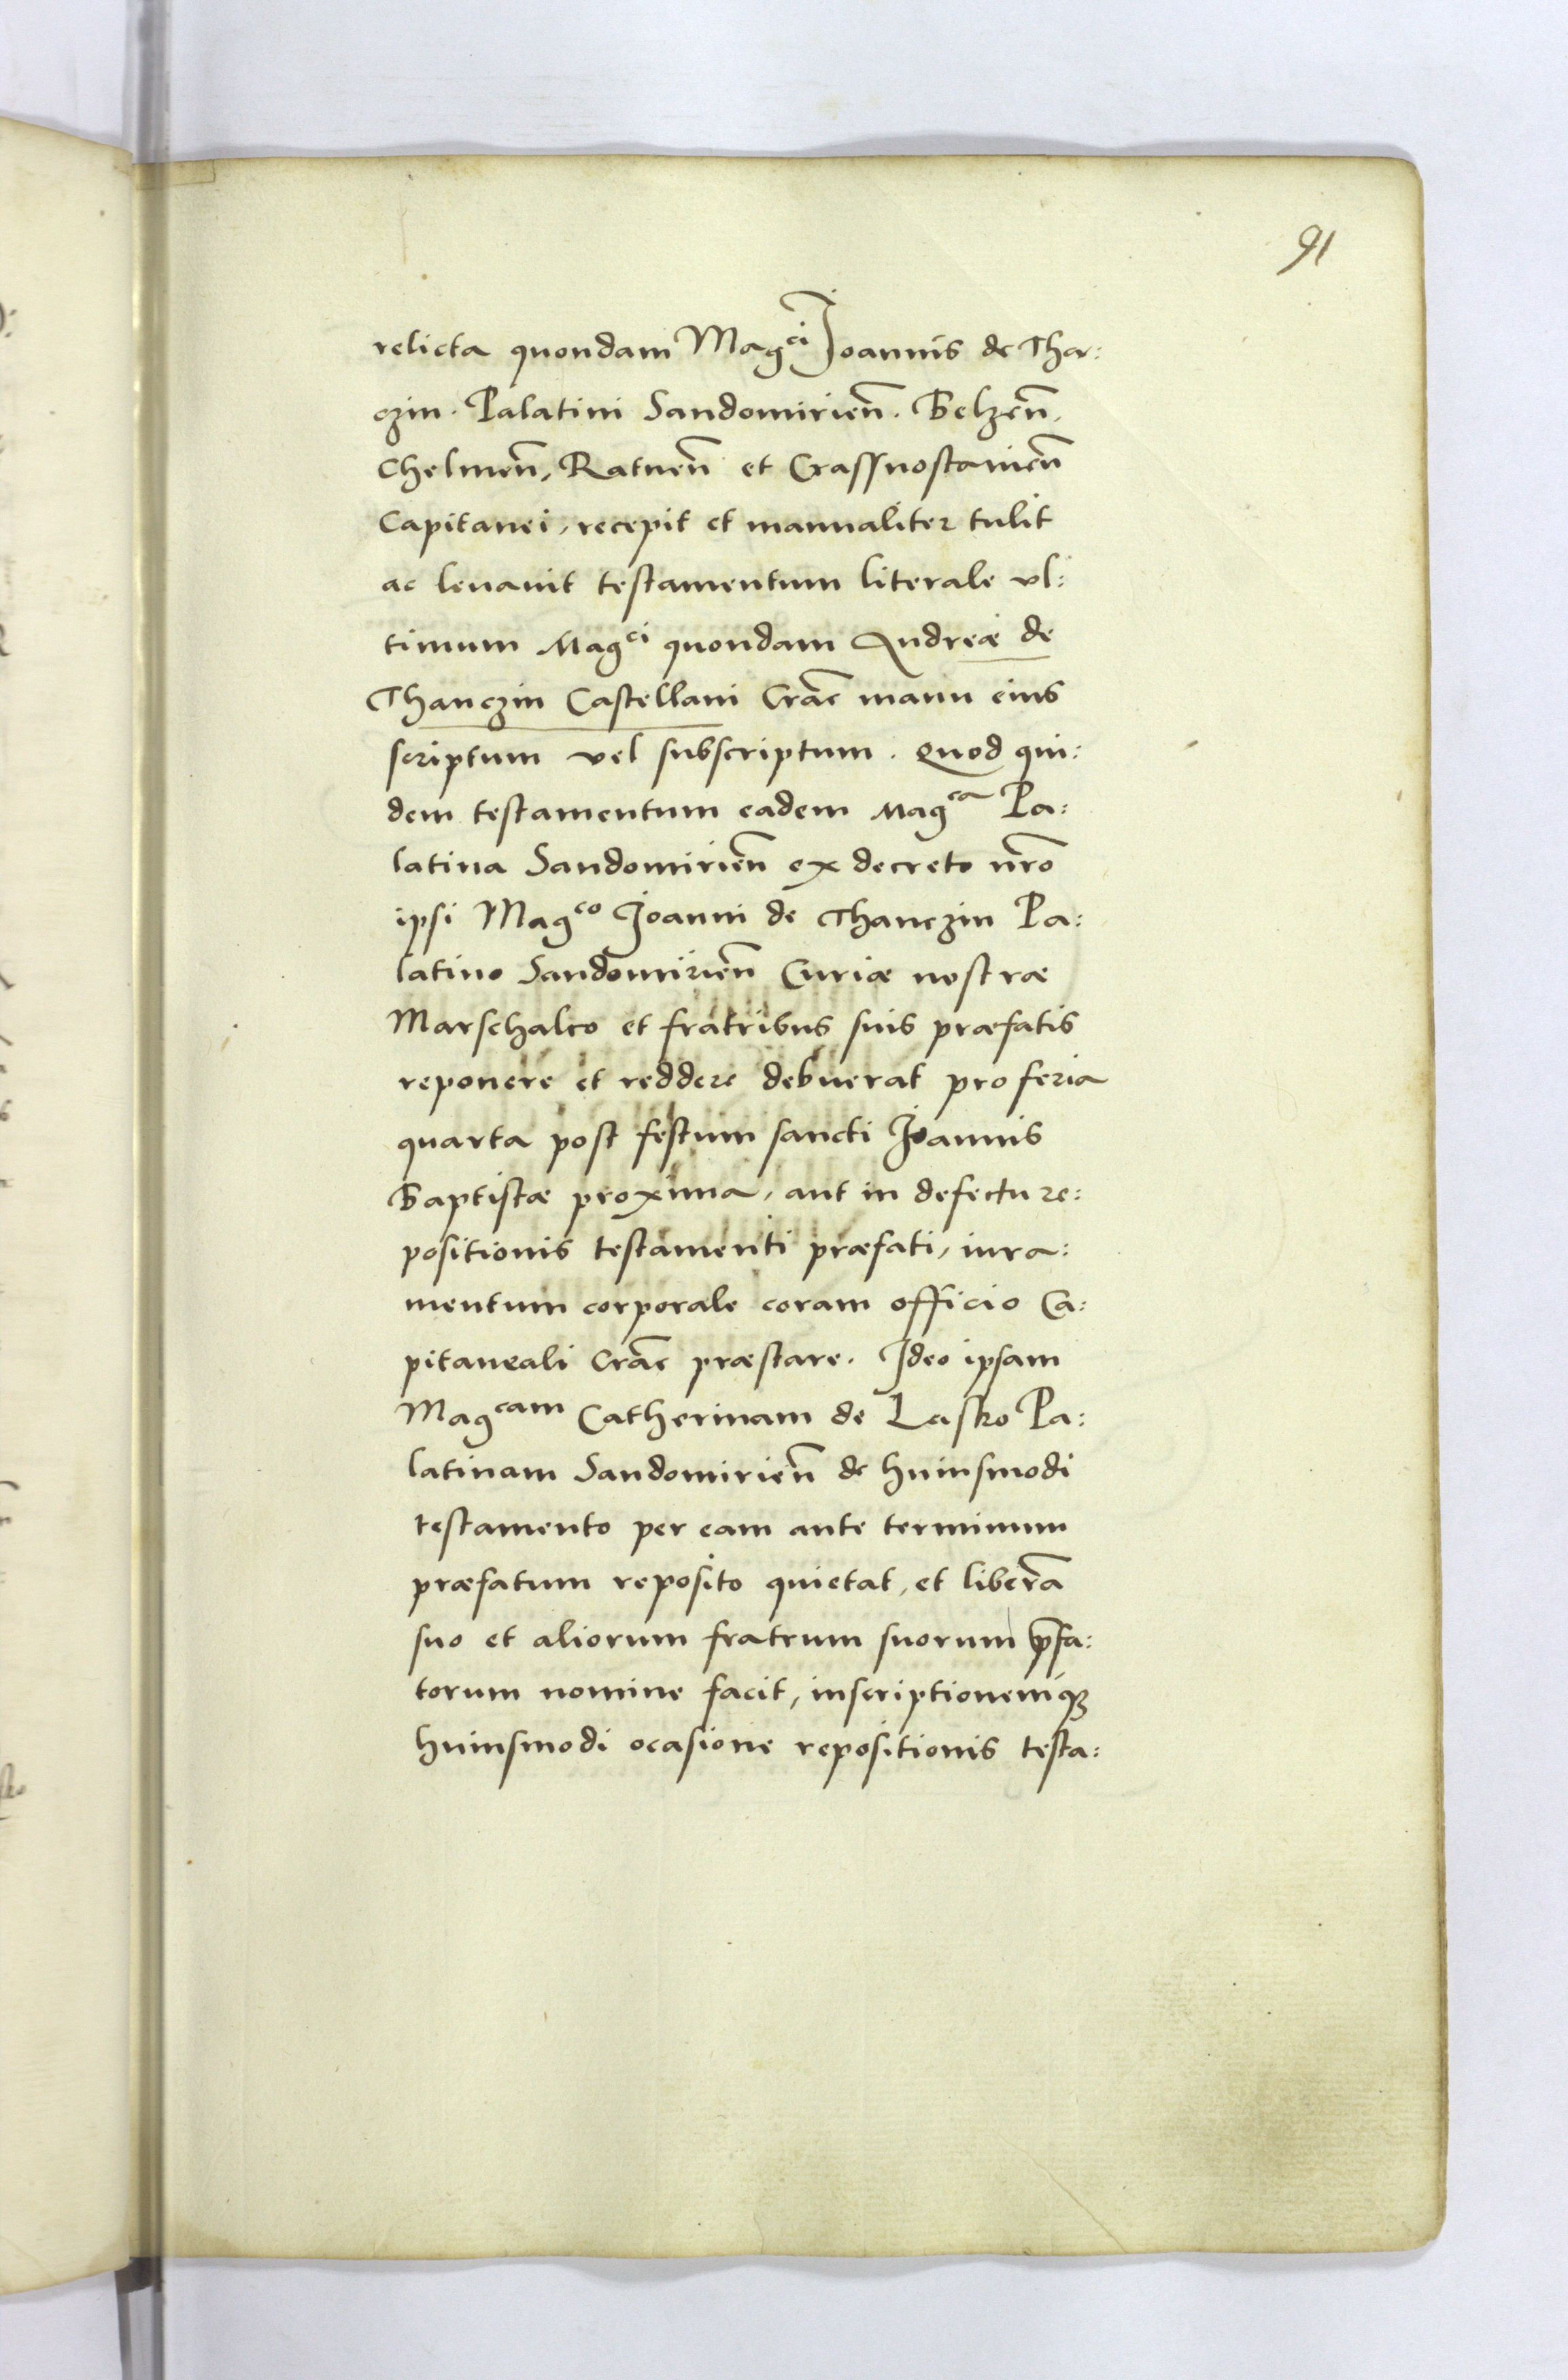 91
relicta quondam Mag^ci Joannis de Tha:
czin. Palatini Sandomirieñ. Belzeñ,
Chelmeñ, Ratneñ et Crassnostauieñ
Capitanei, recepit et manualiter tulit
ac leuauit testamentum literale vl:
timum Mag^ci quondam Andreæ de
Thanczin Castellani Crac̄ manu eius
scriptum vel subscriptum. Quod qui:
dem testamentum eadem Mag^ca Pa:
latina Sandomirieñ ex decreto nr̄o
ipsi Mag^co Joanni de Thanczin Pa:
latino Sandomirieñ Curiæ nostræ
Marschalco et fratribus suis præfatis
reponere et reddere debuerat pro feria
quarta post festum sancti Joannis
Baptistæ proxima, aut in defectu re:
positionis testamenti præfati, iura:
mentum corporale coram officio Ca:
pitaneali Crac̄ præstare. Ideo ipsam
Mag^cam Catherinam de Lasko Pa:
latinam Sandomirieñ de huiusmodi
testamento per eam ante terminum
præfatum reposito quietat, et liberā
suo et aliorum fratrum suorum p̄fa:
torum nomine facit, inscriptionemq;
huiusmodi ocasione repositionis testa: